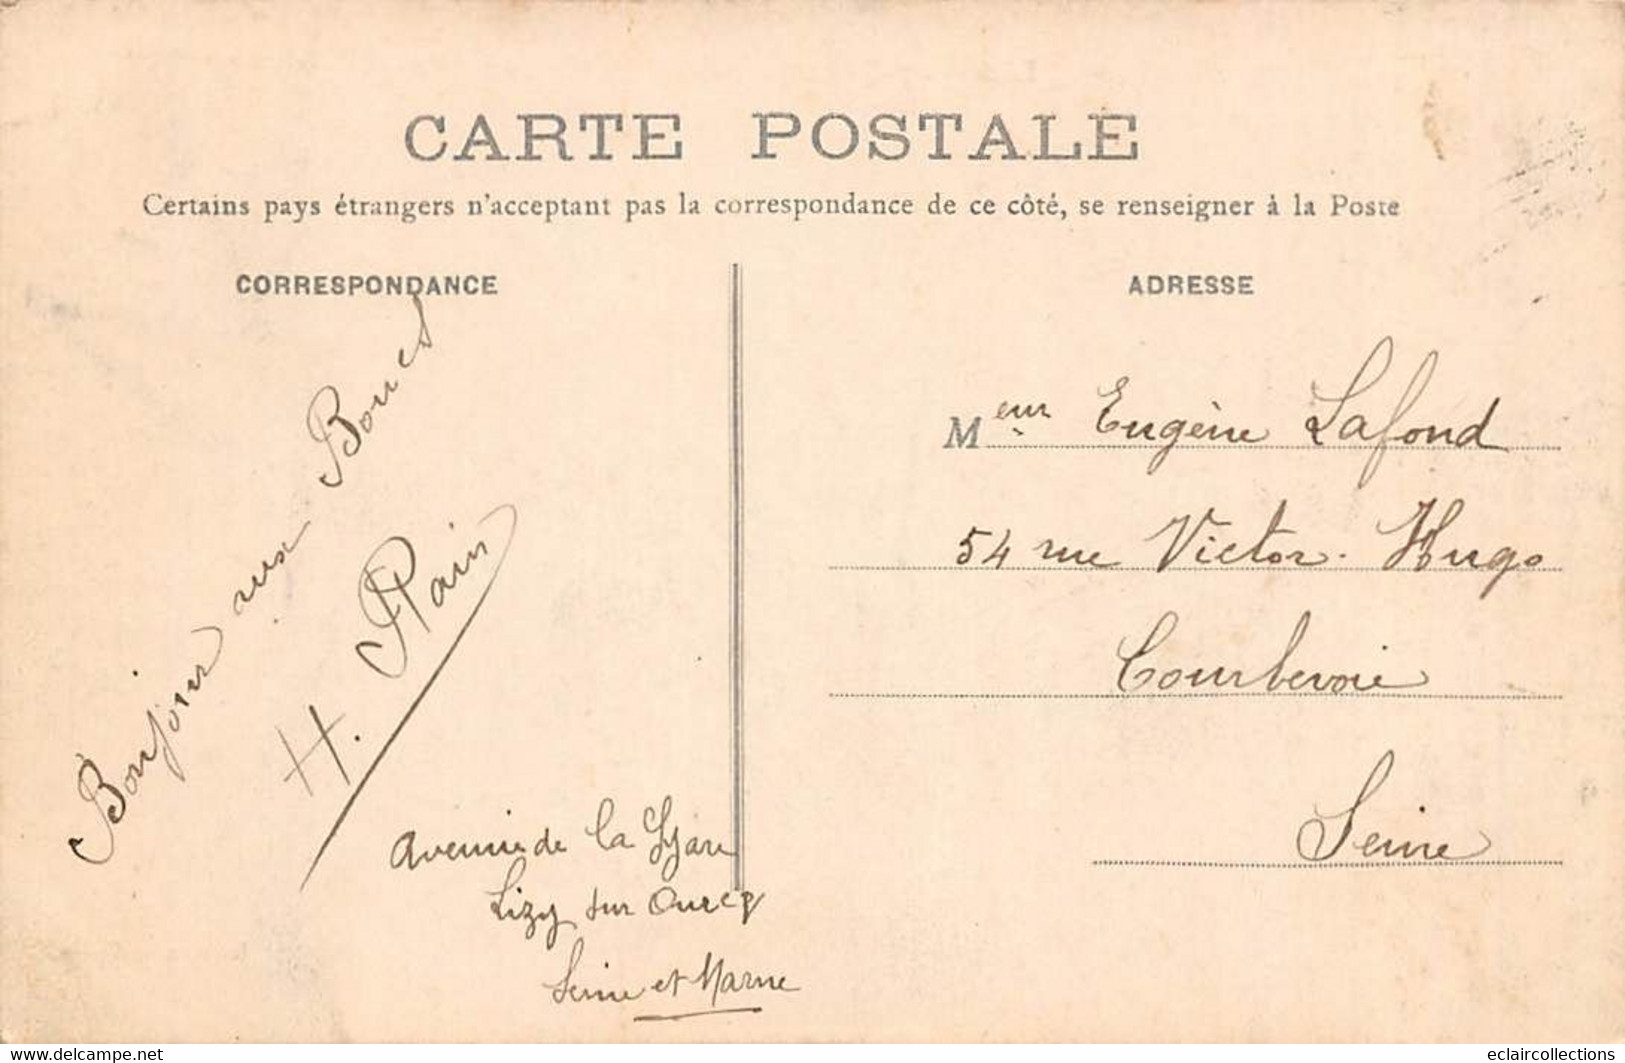 CARTE POSTALE
Certains pays étrangers n'acceptant pas la correspondance de ce côté, se renseigner à la Poste
CORRESPONDANCE
ADRESSE
Bonjour aux
H. Pain
Avenue de la Gare
Lizy sur Ourcq
Seine et Marne
Meur Eugène Lafond
54 rue Victor-Hugo
Courbevoie
Seine
eclaircollections